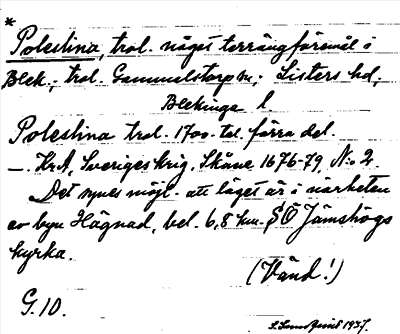 *
Polestina, trol. något terrängföremål i
Blek.; trol. Gammalstorp sn; Listers hd;
Blekinge l
Polestina trol. 1700-tal. förra del.
—. KrA, Sveriges krig, Skåne 1676-79, N:o 2.
Det synes möjl. att läget är i närheten
av byn Hägnad, bel. 6,8 km. SÖ Jämshögs
kyrka.
(Vänd!)
G. 10.
1937.